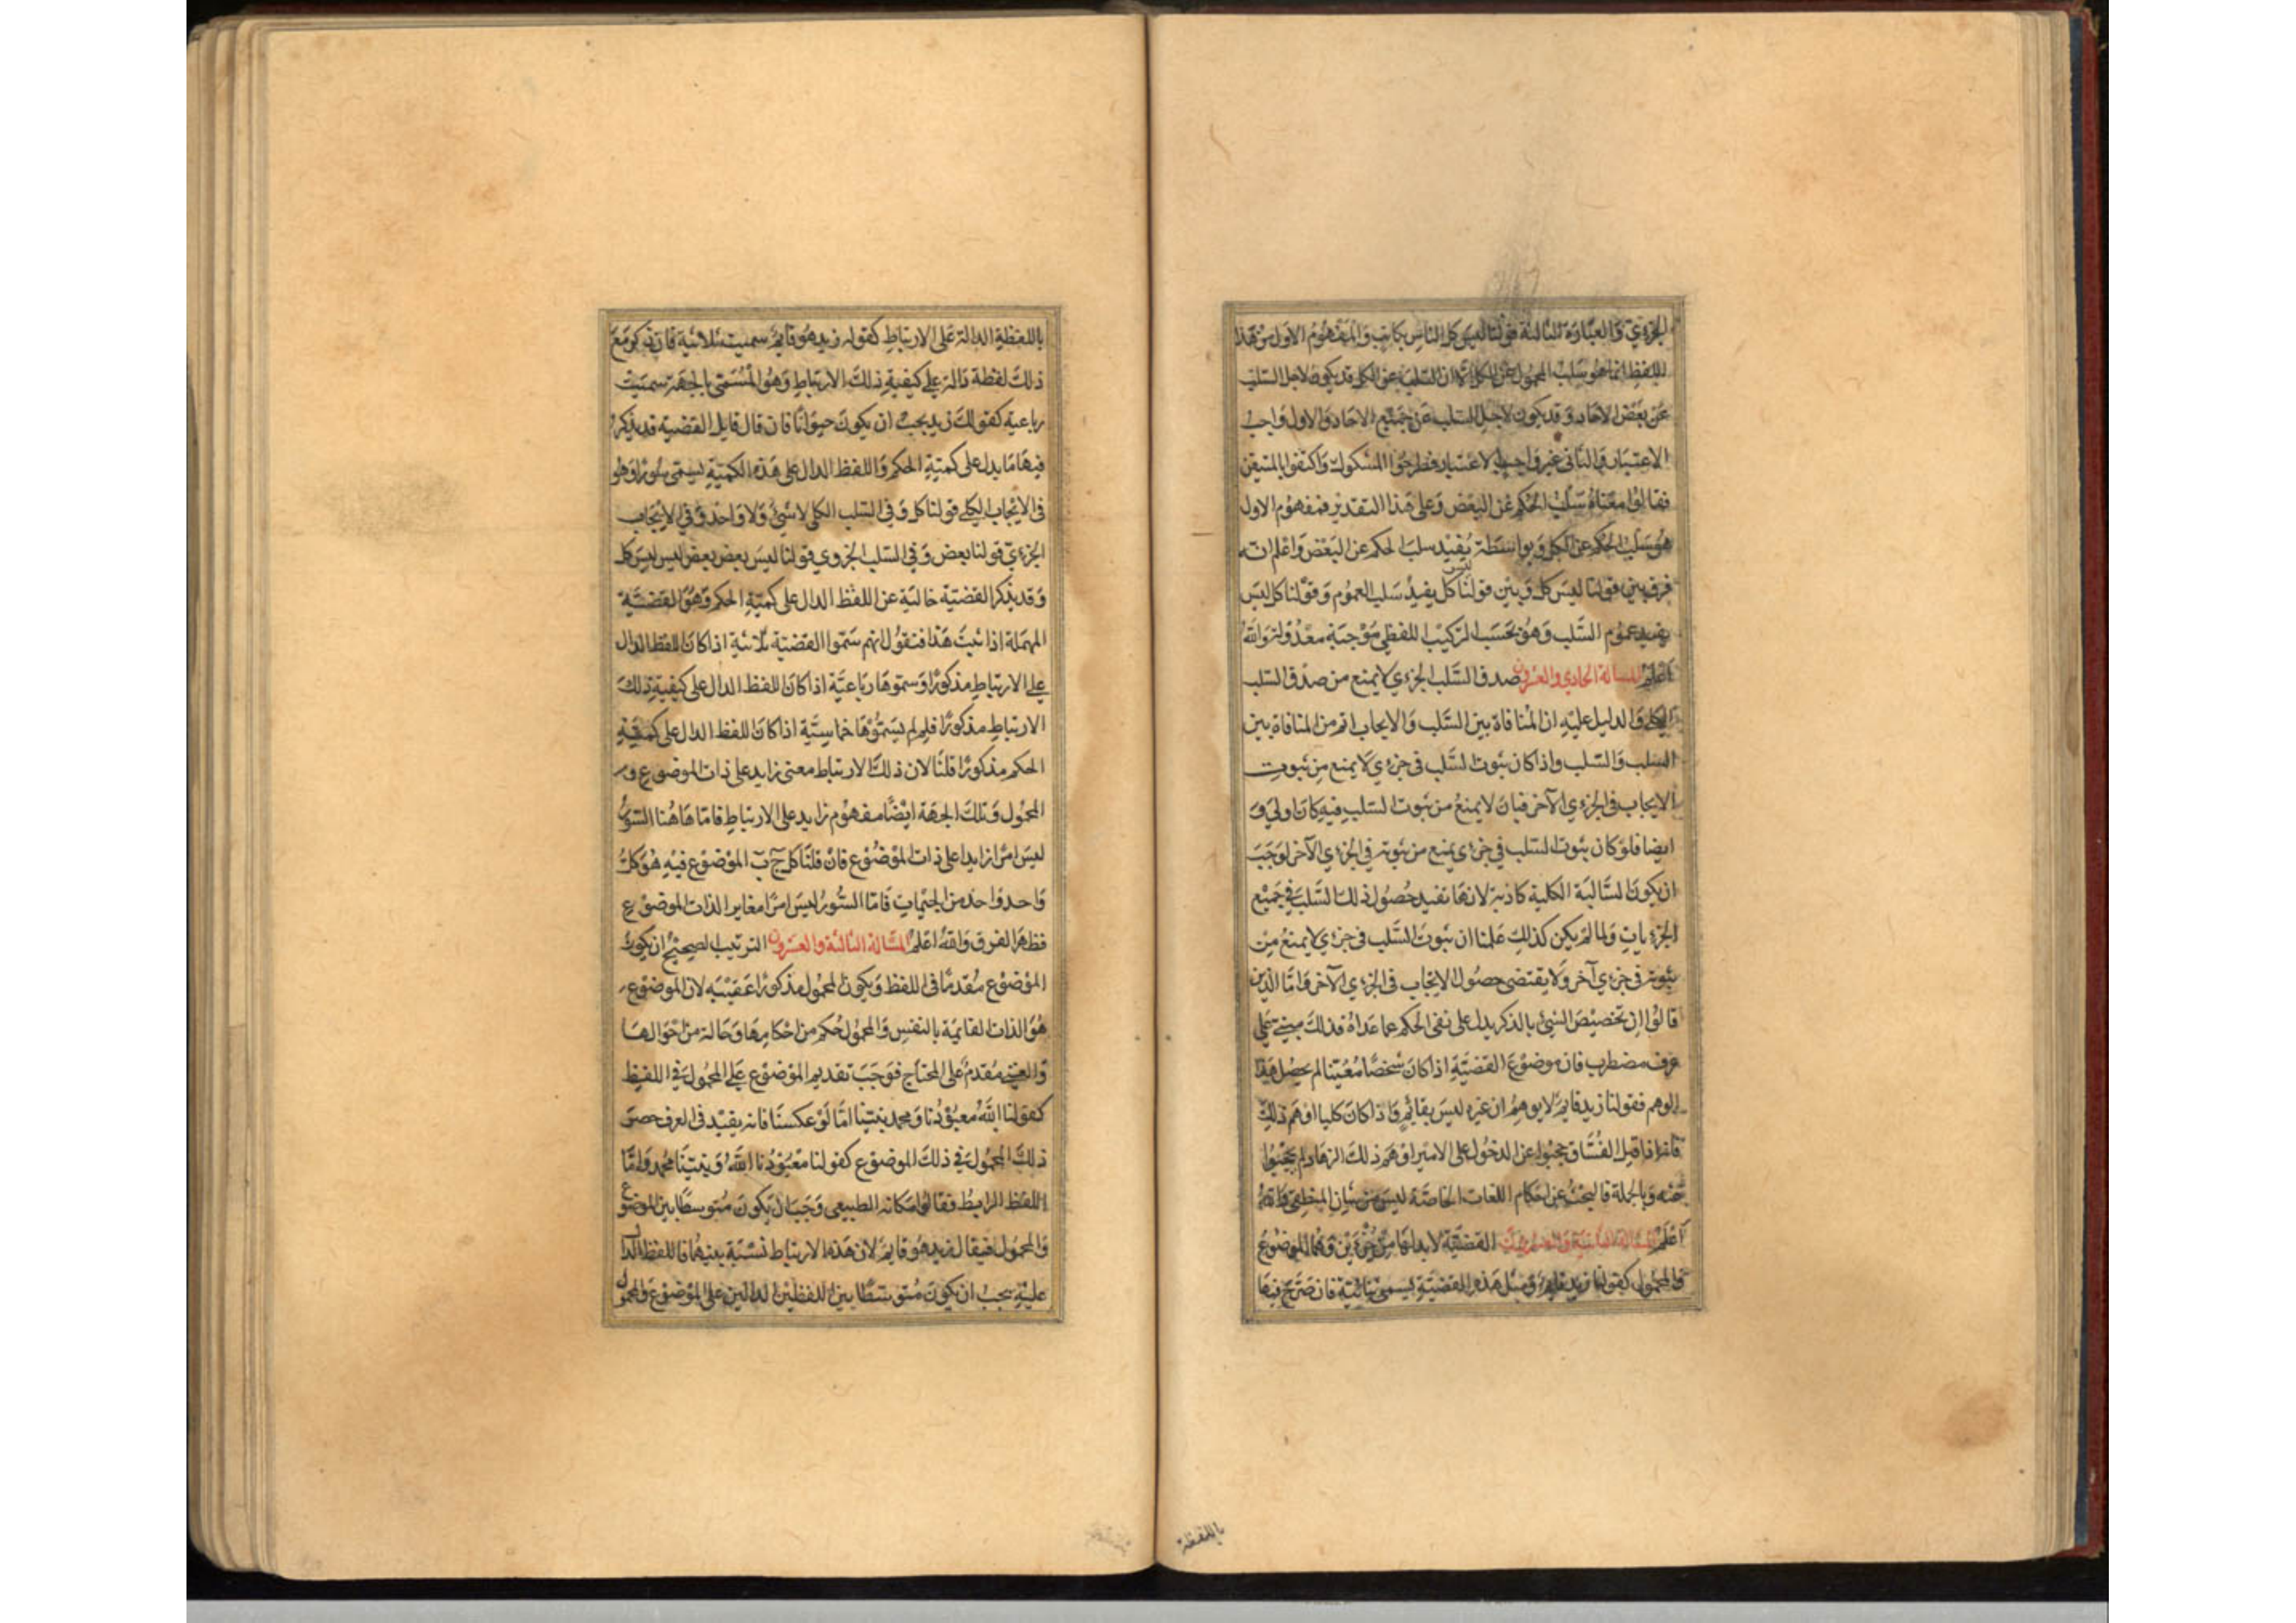 الجزءي والعبارة الثالثة قولنا ليس كل الناس بكاتب والمفهوم الاول من هذا
اللفظ انما هو سلب المحمول عن الكل الا ان السلب عن الكل قد يكون لاجل السلب
عن بعض الاحاد وقد يكون لاجل السلب عن جميع الاحاد والاول واجب
الاعتبار والثانى غير واجب الاعتبار فطرحوا المشكوك واكتفوا بالمتيقن
فقالوا معناه سلب الحكم عن البعض وعلى هذا التقدير فمفهوم الاول
هو سلب الحكم عن الكل وبواسطة يفيد سلب الحكم عن البعض واعلم انه
فرق بين قولنا ليس كل وبين قولنا كل ليس يفيد سلب العموم وقولنا كل ليس
يفيد عموم السلب وهو بحسب التركيب اللفظي موجبة معدولة والله
اعلم المسالة الحادي والعشرون صدق السلب الجزءي لا يمنع من صدق السلب
الكلي والدليل عليه ان المنافاة بين السلب والايجاب اتم من المنافاة بين
السلب والسلب واذا كان ثبوت السلب في جزءي لا يمنع من ثبوت
الايجاب في الجزءي الآخر فبان لا يمنع من ثبوت السلب فيه كان اولي و
ايضا فلو كان ثبوت السلب في جزءي يمنع من ثبوته في الجزءي الآخر لوجب
ان يكون السالبة الكلية كاذبة لانها تفيد حصول ذلك السلب في جميع
الجزءيات ولما لم يكن كذلك علمنا ان ثبوت السلب في جزءي لا يمنع من
ثبوته في جزءي آخر ولا يقتضى حصول الايجاب في الجزءي الآخر واما الذين
قالوا ان تخصيص الشئ بالذكر يدل على نفى الحكم عما عداه فذلك مبني علي
عرف مضطرب فان موضوع القضية اذا كان شخصا معينا لم يحصل هذا
الوهم فقولنا زيد قايم لا يوهم ان غيره ليس بقائم واذا كان كليا اوهم ذلك
فانه اذا قيل الفساق يحجبوا عن الدخول على الامير اوهم ذلك الزهاد لم يحجبوا
عنه وبالجملة فالبحث عن احكام اللغات الخاصة ليس من شان المنطقي والله
اعلم المسالة الثانية والعشرون القضية لا بد لها من جزءين وهما الموضوع
والمحمول كقولنا زيد قايم ومثل هذه القضية يسمى ثنائية فان صرح فيها
باللفظة
باللفظة الدالة على الارتباط كقوله زيد هو قايم سميت ثلاثية فان ذكر مع
ذلك لفظة دالة علي كيفية ذلك الارتباط وهو المسمى بالجهة سميت
رباعية كقولك زيد يجب ان يكون حيوانا فان قال قايل القضية قد يذكر
فيها ما يدل على كمية الحكم واللفظ الدال على هذه الكمية يسمى سورا وهو
فى الايجاب الكلي قولنا كل وفى السلب الكلي لا شئ ولا واحد وفي الايجاب
الجزءي قولنا بعض وفي السلب الجزوي قولنا ليس بعض بعض ليس ليس كل
وقد يذكر القضية خالية عن اللفظ الدال على كمية الحكم وهو القضية
المهملة اذا ثبت هذا فنقول انهم سموا القضية ثلاثية اذا كان اللفظ الدال
علي الارتباط مذكورا وسموها رباعية اذا كان اللفظ الدال على كيفية ذلك
الارتباط مذكورا فلم لم يسموها خماسية اذا كان اللفظ الدال على كمية
الحكم مذكورا قلنا لان ذلك الارتباط معنى زايد على ذات الموضوع و
المحمول وتلك الجهة ايضا مفهوم زايد على الارتباط فاما هاهنا السور
ليس امرا زايدا على ذات الموضوع فان قلنا كل ج ب الموضوع فيه هو كل
واحد واحد من الجيمات فاما السور ليس امرا مغايرا لذات الموضوع
فظهر الفرق والله اعلم المسالة الثالثة والعشرون الترتيب الصحيح ان يكون
الموضوع مقدما فى اللفظ ويكون المحمول مذكورا عقيبه لان الموضوع
هو الذات القايمة بالنفس والمحمول حكم من احكامها وحالة من احوالها
والغني مقدم على المحتاج فوجب تقديم الموضوع علي المحمول في اللفظ
كقولنا الله معبودنا ومحمد نبينا اما لو عكسنا فانه يفيد فى العرف حصر
ذلك المحمول في ذلك الموضوع كقولنا معبودنا الله ونبينا محمد واما
اللفظ الرابط فقالوا مكانه الطبيعي وجب ان يكون متوسطا بين الموضوع
والمحمول فيقال زيد هو قايم لان هذه الارتباط نسبة بينهما فاللفظ الدال
عليه يجب ان يكون متوسطا بين اللفظين الدالين على الموضوع والمحمول